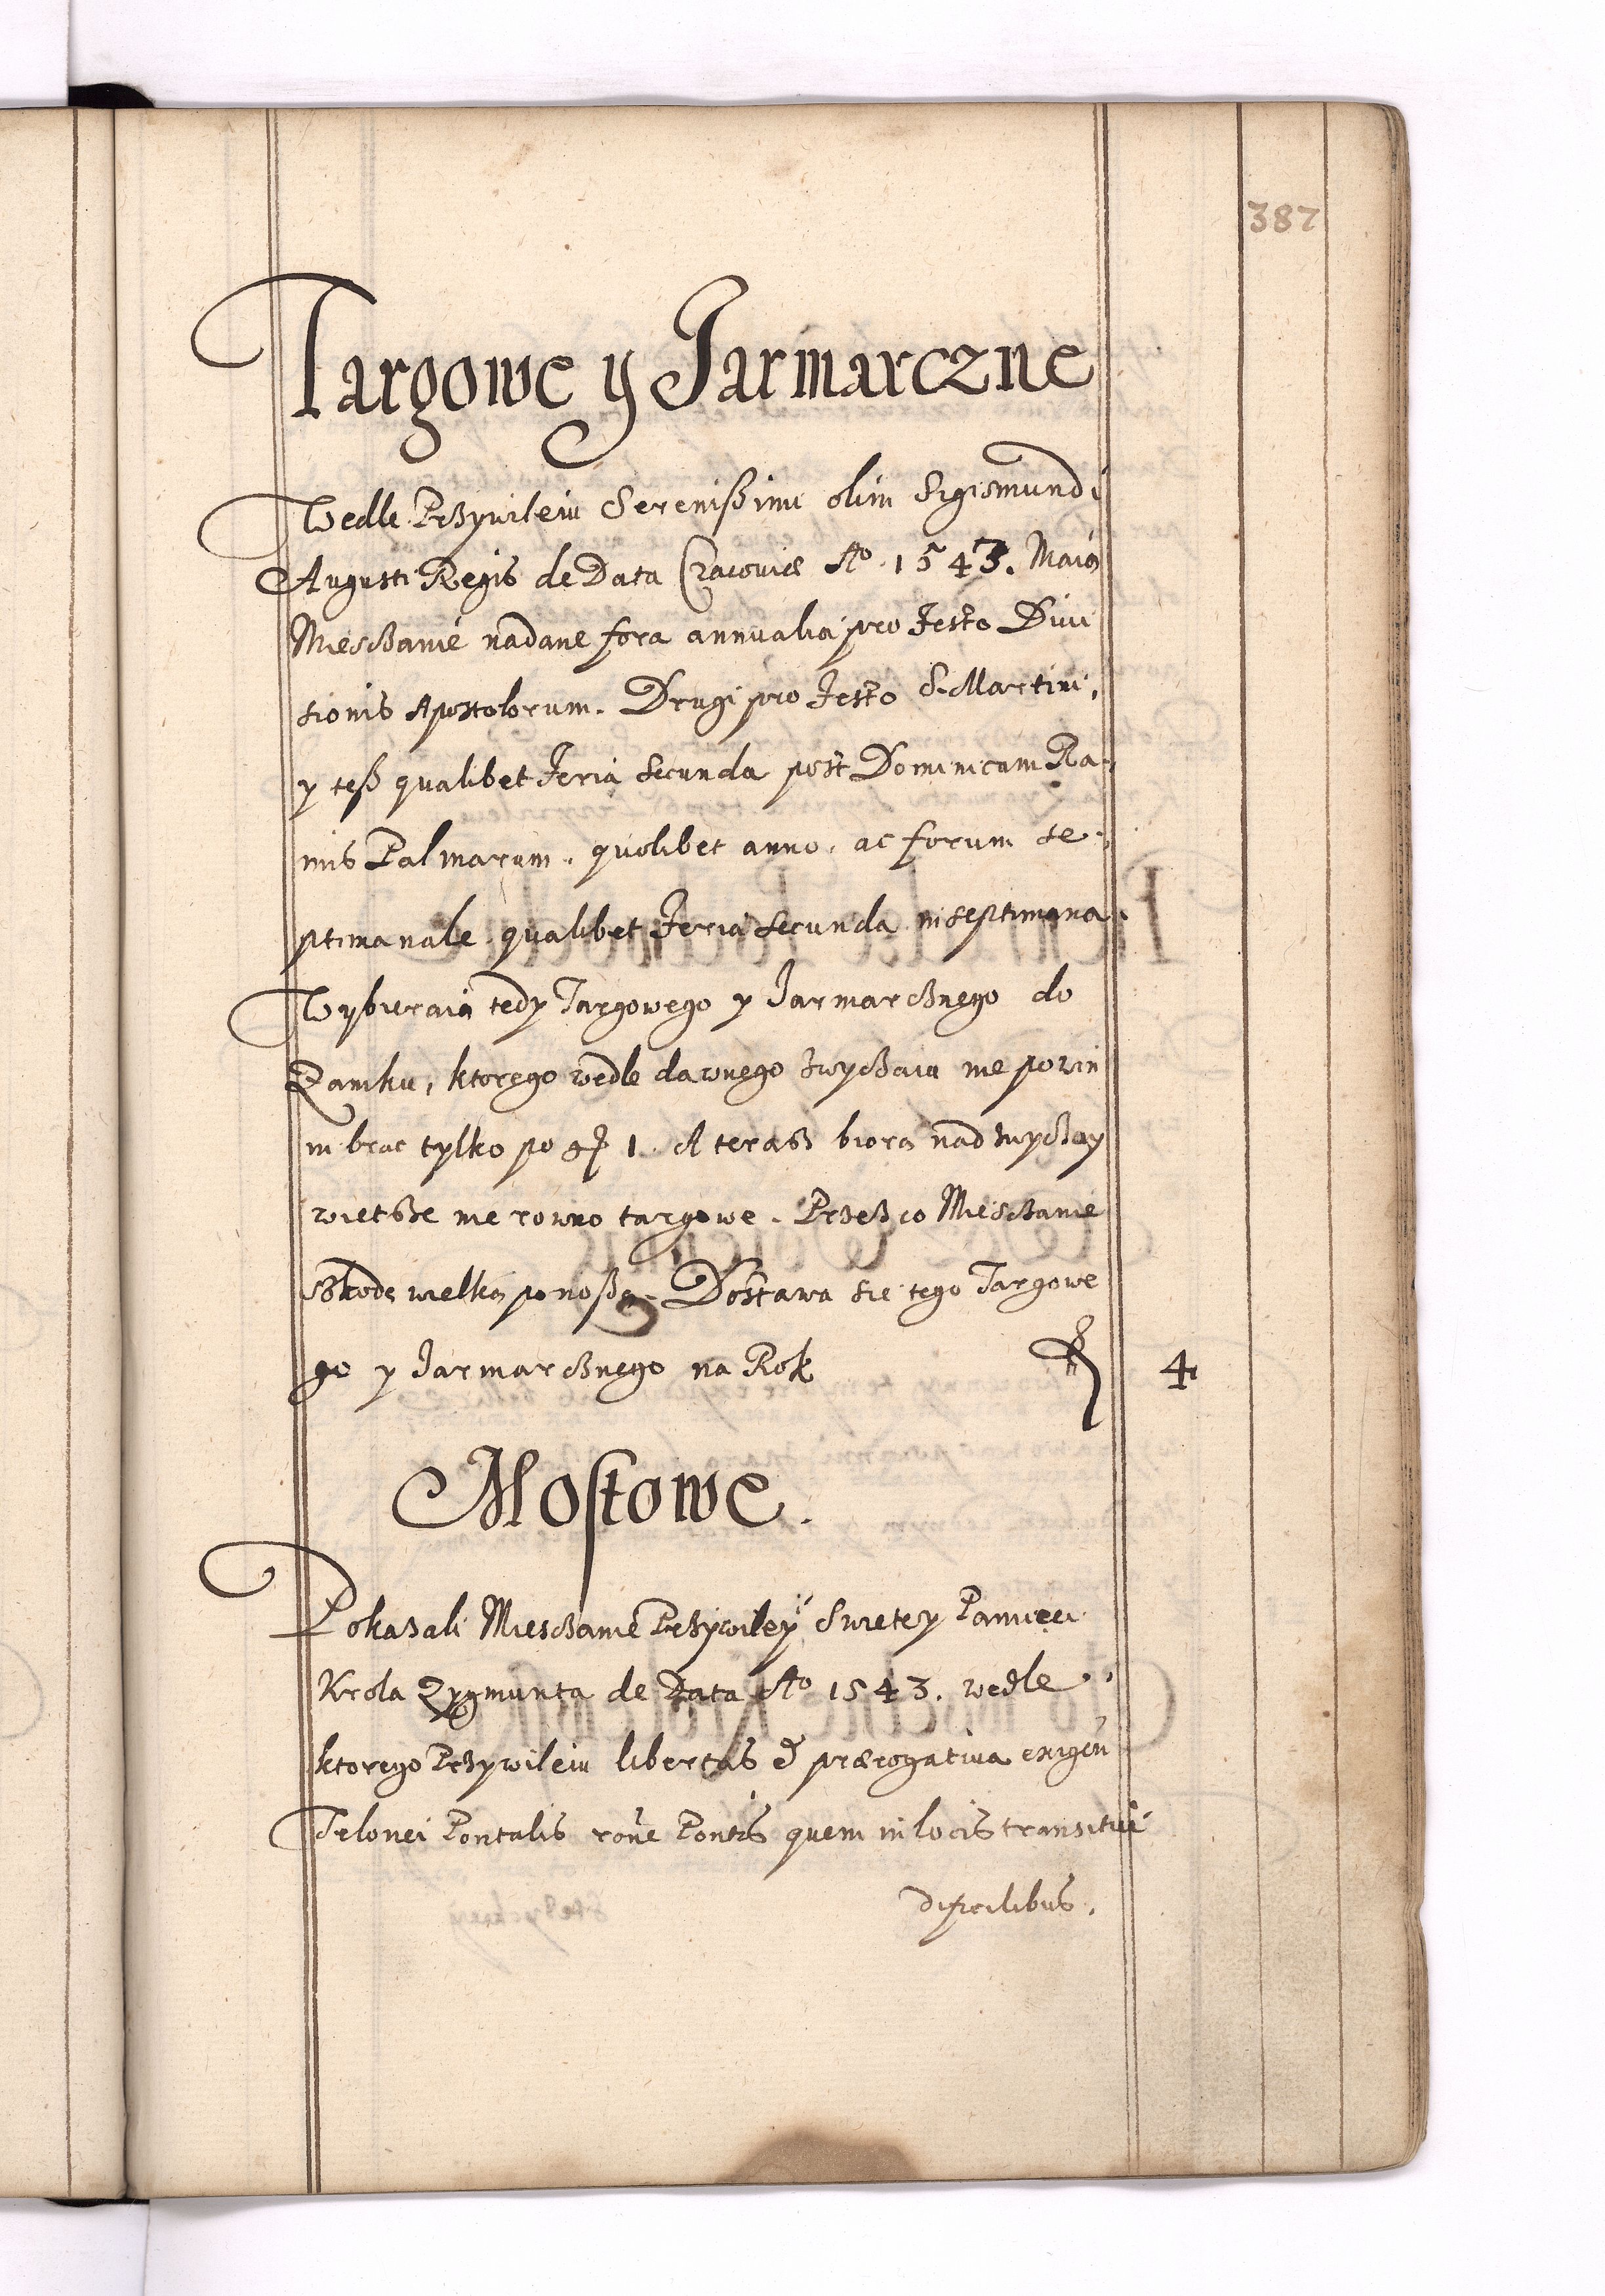 387
Targowe y Jarmarczne
Wedle Przywileiu Serenißimi olim Sigismundi
Augusti Regis de Data Cracoviæ Ao. 1543. Maią
Miesczanie nadane fora annualia pro Festo Divi
sionis Apostolorum. Drugi pro Festo S. Martini,
y teß qualibet Feria secunda post Dominicam Ra-
mis Palmarum. quolibet anno. ac forum se-
ptimanale qualibet Feria secunda in septimana.
Wybieraią tedy Targowego y Jarmarcznego do
Zamku, ktorego wedle dawnego zwyczaiu nie powin
ni brac tylko po gr 1. A teraz biorą nad zwyczay
wietsze nie rowno targowe. Przez co Miesczanie
szkodę wielką ponoßą. Dostawa sie tego Targowe
go y Jarmarcznego na Rok fl 4
Mostowe.
Pokazali Miesczanie Przywiley Swietey Pamieci
Krola Zygmunta de Data Ao 1543. wedle
ktorego Przywileiu libertas et prærogativa exigen
Telonei Pontalis rone Pontis quem in locis transitui
dificilibus.